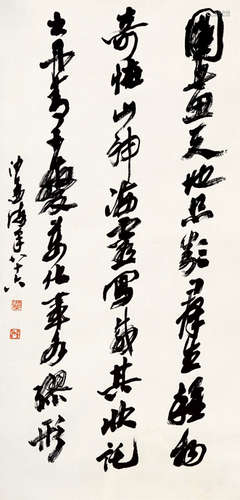 圖畫天地品類羣生雜物
奇怪山神海靈寫載其狀託
之丹青千變萬化事各繆形
沙孟海年八十六